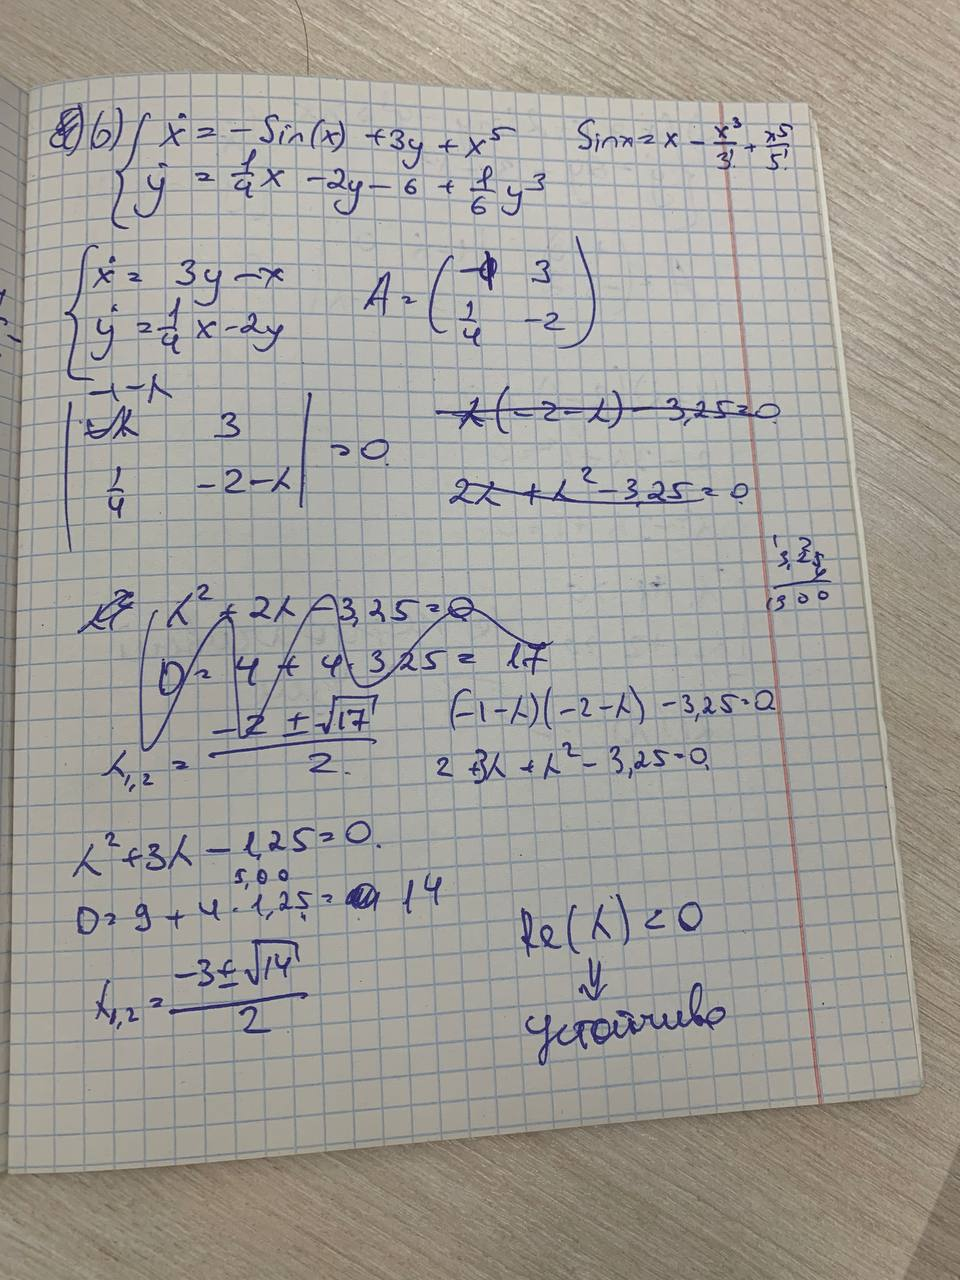 б) { ẋ = -Sin(x) + 3y + x⁵
ẏ = 1/4 x - 2y - 6 + 1/6 y³
Sinx = x - x³/3! + x⁵/5!
{ ẋ = 3y - x
ẏ = 1/4 x - 2y
A = ( -1 3
1/4 -2 )
-1-λ
3
1/4 -2-λ
= 0
λ(-2-λ) - 3,25 = 0
2λ + λ² - 3,25 = 0
3,25
4
1300
λ² + 2λ - 3,25 = 0
D = 4 + 4·3,25 = 17
λ₁,₂ = (-2 ± √17)/2.
(-1-λ)(-2-λ) - 3,25 = 0
2 + 3λ + λ² - 3,25 = 0.
λ² + 3λ - 1,25 = 0.
5,00
D = 9 + 4·1,25 = 14
λ₁,₂ = (-3 ± √14)/2
Re(λ) < 0
⇓
устойчиво